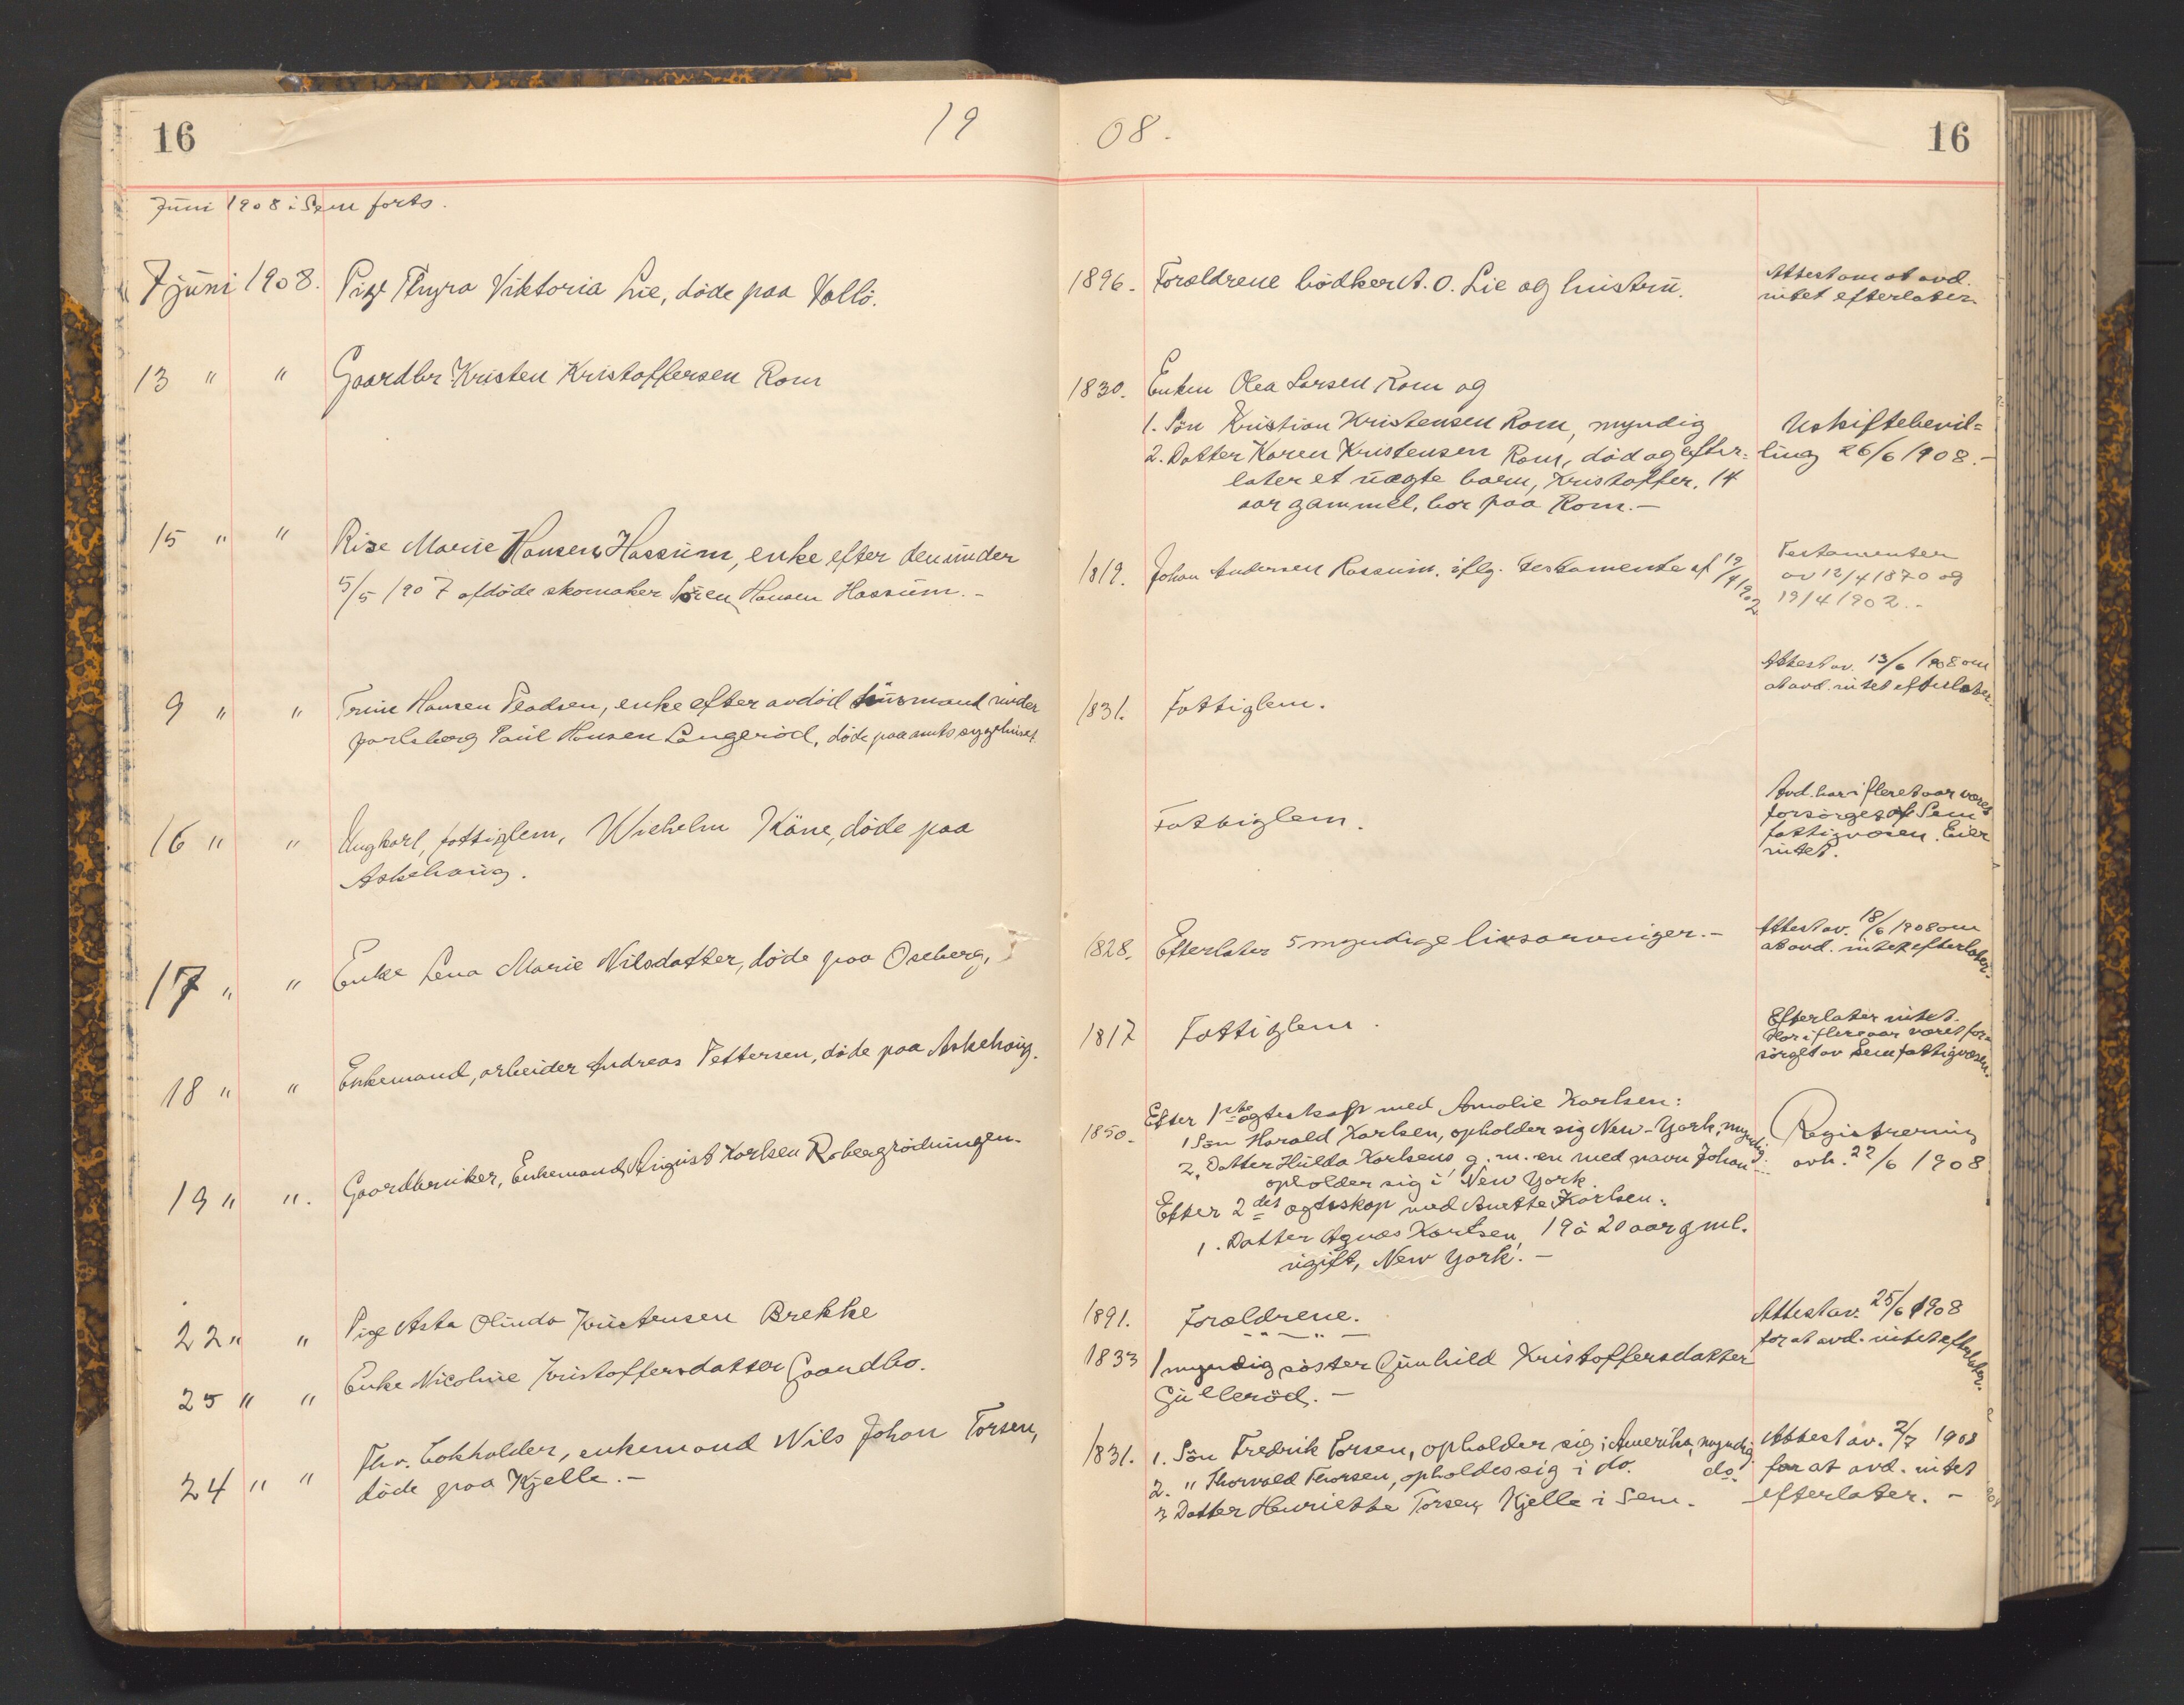 16 19
08. 16
Juni 1908 i Sem forts.
7 juni 1908. Pige Thyra Viktoria Lie, døde paa Vallö.
1896. Forældrene bödker A. O. Lie og hustru.
Attest om at avd.
intet efterlater.
13 " " Gaardbr. Kristen Kristoffersen Rom
1830. Enken Olea Larsen Rom og
1. Sön Kristian Kristensen Rom, myndig
2. Datter Karen Kristensen Rom, död og efter-
later et uægte barn, Kristoffer, 14
aar gammel, bor paa Rom.-
Uskiftebevil-
ling 26/6 1908.-
15 " " Rise Marie Hansen Hassum, enke efter den under
5/5 1907 afdöde skomaker Sören Hansen Hassum.-
1819. Johan Andersen Rassum, iflg. testamente af 19/4 1902
Testamenter
av 12/4 1870 og
19/4 1902.-
9 " " Trine Hansen Pladsen, enke efter avdöd husmand under
Jarlsberg Paul Hansen Langeröd, döde paa amtssygehuset.
1831. Fattiglem.
Attest av. 13/6 1908 om
at avd. intet efterlater.
16 " " Ungkarl, fattiglem, Wilhelm Käne, döde paa
Askehaug.
Fattiglem.
Avd. har i flere aar været
forsörget af Sem
fattigvæsen. Eier
intet.
17 " " Enke Lena Marie Nilsdatter, döde paa Oseberg,
1828. Efterlater 5 myndige livsarvinger.-
Attest av. 18/6 1908 om
at avd. intet efterlater.-
18 " " Enkemand, arbeider Andreas Pettersen, döde paa Askehaug.
1817 Fattiglem.
Efterlater intet.
Har i flere aar været for-
sörget av Sem fattigvæsen.
19 " ". Gaardbruker, Enkemand August Karlsen Robergrödningen.
1850. Efter 1ste ægteskap med Amalie Karlsen:
1 Sön Harald Karlsen, opholder sig New-York, myndig.
2. Datter Hulda Karlsens g. m. en med navn Johan
opholder sig i New York.
Efter 2det ægteskap med Anette Karlsen:
1. Datter Agnes Karlsen, 19 à 20 aar gml.
ugift, New York.-
Registrering
avh. 22/6 1908
22 " " Pige Asta Olinda Kristensen Brekke
1891. Forældrene.
Attest av. 25/6 1908
for at avd. intet efterlater.
25 " " Enke Nicoline Kristoffersdatter Gaardbo.
1833 1 myndig söster Gunhild Kristoffersdatter
Gulleröd.-
24 " " Fhv. bokholder, enkemand Nils Johan Torsen,
döde paa Kjelle.-
1831. 1. Sön Fredrik Torsen, opholder sig i Amerika, myndig
2. " Thorvald Thorsen, opholder sig i do. do.
3 Datter Henriette Torsen, Kjelle i Sem.
Attest av. 2/7 1908
for at avd. intet
efterlater.-